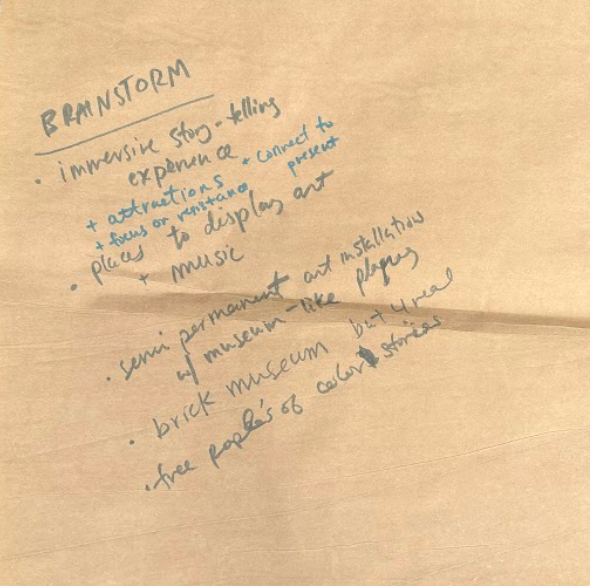 BRAINSTORM
• immersive story-telling
experience
+ connect to
present
+ attractions
+ focus on resistance
• places to display art
+ music
• semi permanent art installation
w/ museum-like plaques
• brick museum but 4 real
• free people's of color stories